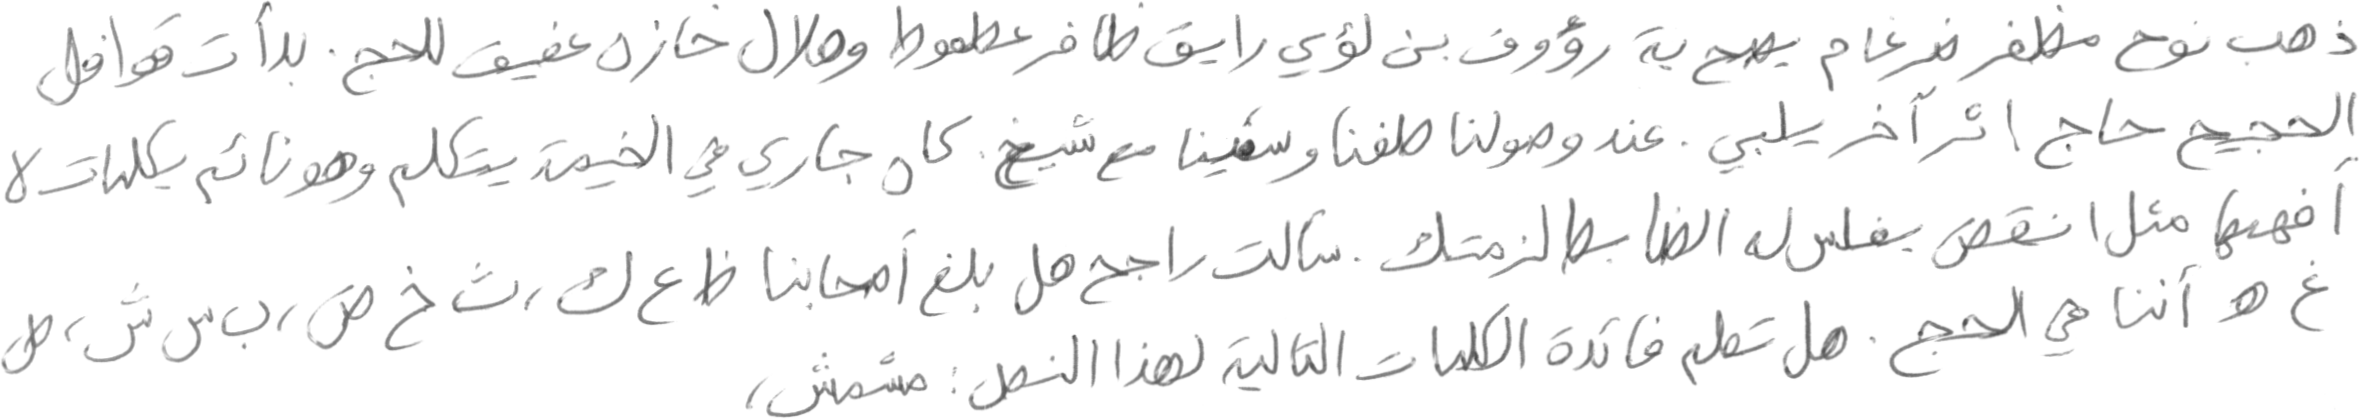 ذهب نوح مظفر ضرغام بصحبة رؤوف بن لؤي رايق ظافر عطعوط وهلال خازن عفيف للحج. بدأت قوافل
الحجيج حاج اثر آخر يلبي. عند وصولنا طفنا وسقينا مع شيخ. كان جاري في الخيمة يتكلم وهو نائم بكلمات لا
أفهمها مثل انقض بغلس له الضابط لزمتك. سألت راجح هل بلغ أصحابنا ظ ع ك، ث خ ض، ب س ش، ص
غ ه أننا في الحج. هل تعلم فائدة الكلمات التالية لهذا النص: مشمش،